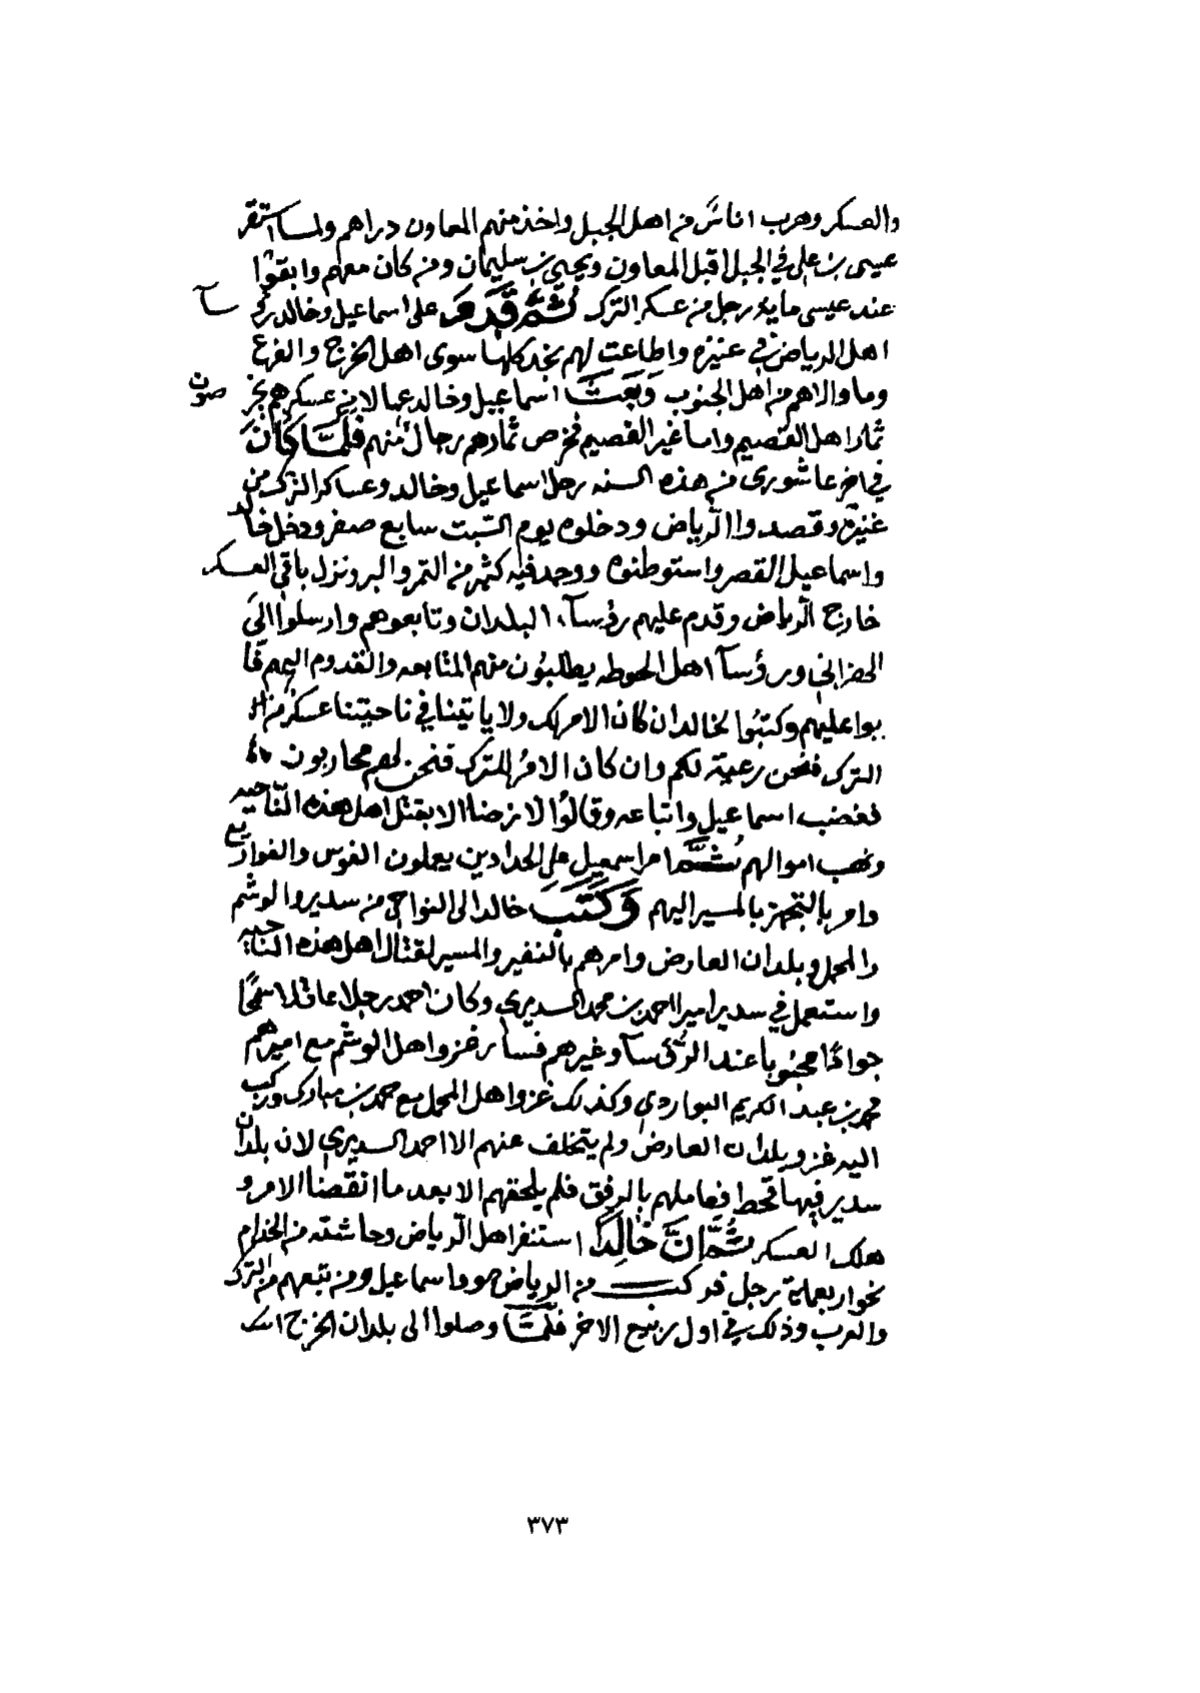 والعسكر وهرب اناسٌ من اهل الجبل واخذ منهم المعاون دراهم ولما استقر
عيسى بن علي في الجبل اقبل المعاون ويحيى بن سليمان ومن كان معهم وابقوا
عند عيسى ماية رجل من عسكر الترك ثُمَّ قَدِمَ على اسماعيل وخالد رؤسآ
اهل الرياض في عنيزه واطاعت لهم نجد كلها سوى اهل الخرج والفرع
وما والاهم من اهل الجنوب وَبَعَثَ اسماعيل وخالد عمالا من عسكرهم يخرصون
ثمار اهل القصيم واما غير القصيم فخرص ثمارهم رجال منهم فَلَمَّا كَانَ
في اخر عاشورى من هذه السنه رحل اسماعيل وخالد وعساكر الترك من
عنيزه وقصدوا الرياض ودخلوه يوم السّبت سابع صفر ودخل خالد
واسماعيل القصر واستوطنوه ووجد فيه كثير من التمر والبر ونزل باقي العسكر
خارج الرياض وقدم عليهم رؤسآء البلدان وتابعوهم وارسلوا الى
الهزاني ورؤسآ اهل الحوطه يطلبون منهم المتابعه والقدوم اليهم فأ
بوا عليهم وكتبُوا لخالد ان كان الامر لك ولا ياتينا في ناحيتنا عسكر من
الترك فنحن رعية لكم وان كان الامر للترك فنحن لهم محاربون
فغضب اسماعيل واتباعه وقالُوا لا نرضا الا بقتل اهل هذه النّاحيه
ونهب اموالهم ثُمَّ امر اسمعيل على الحدادين يعملون الفوس والفواريع
وامر بالتجهز بالمسير اليهم وَكَتَبَ خالد الى النواحي من سدير والوشم
والمحمل وبلدان العارض وامرهم بالنفير والمسير لقتال اهل هذه الناحيه
واستعمل في سدير امير احمد بن محمد السديري وكان احمد رجلا عاقلا سمحًا
جوادًا محبُوبا عند الرؤسآ وغيرهم فسار غزو اهل الوشم مع اميرهم
محمد بن عبد الكريم البواردي وكذلك غزو اهل المحمل مع محمد بن مبارك وركب
اليه غزو بلدان العارض ولم يتخلف عنهم الا احمد السديري لان بلدان
سدير فيها قحط فعاملهم بالرفق فلم يلحقهم الا بعد ما انقضا الامر و
هلك العسكر ثُمَّ اِنَّ خَالِدًا استنفر اهل الرّياض وحاشته من الخدام
نحو اربعماية رجل فركب من الرياض هو واسماعيل ومن تبعهم من الترك
والعرب وذلك في اول ربيع الاخر فَلَمَّا وصلوا الى بلدان الخرج
٣٧٣